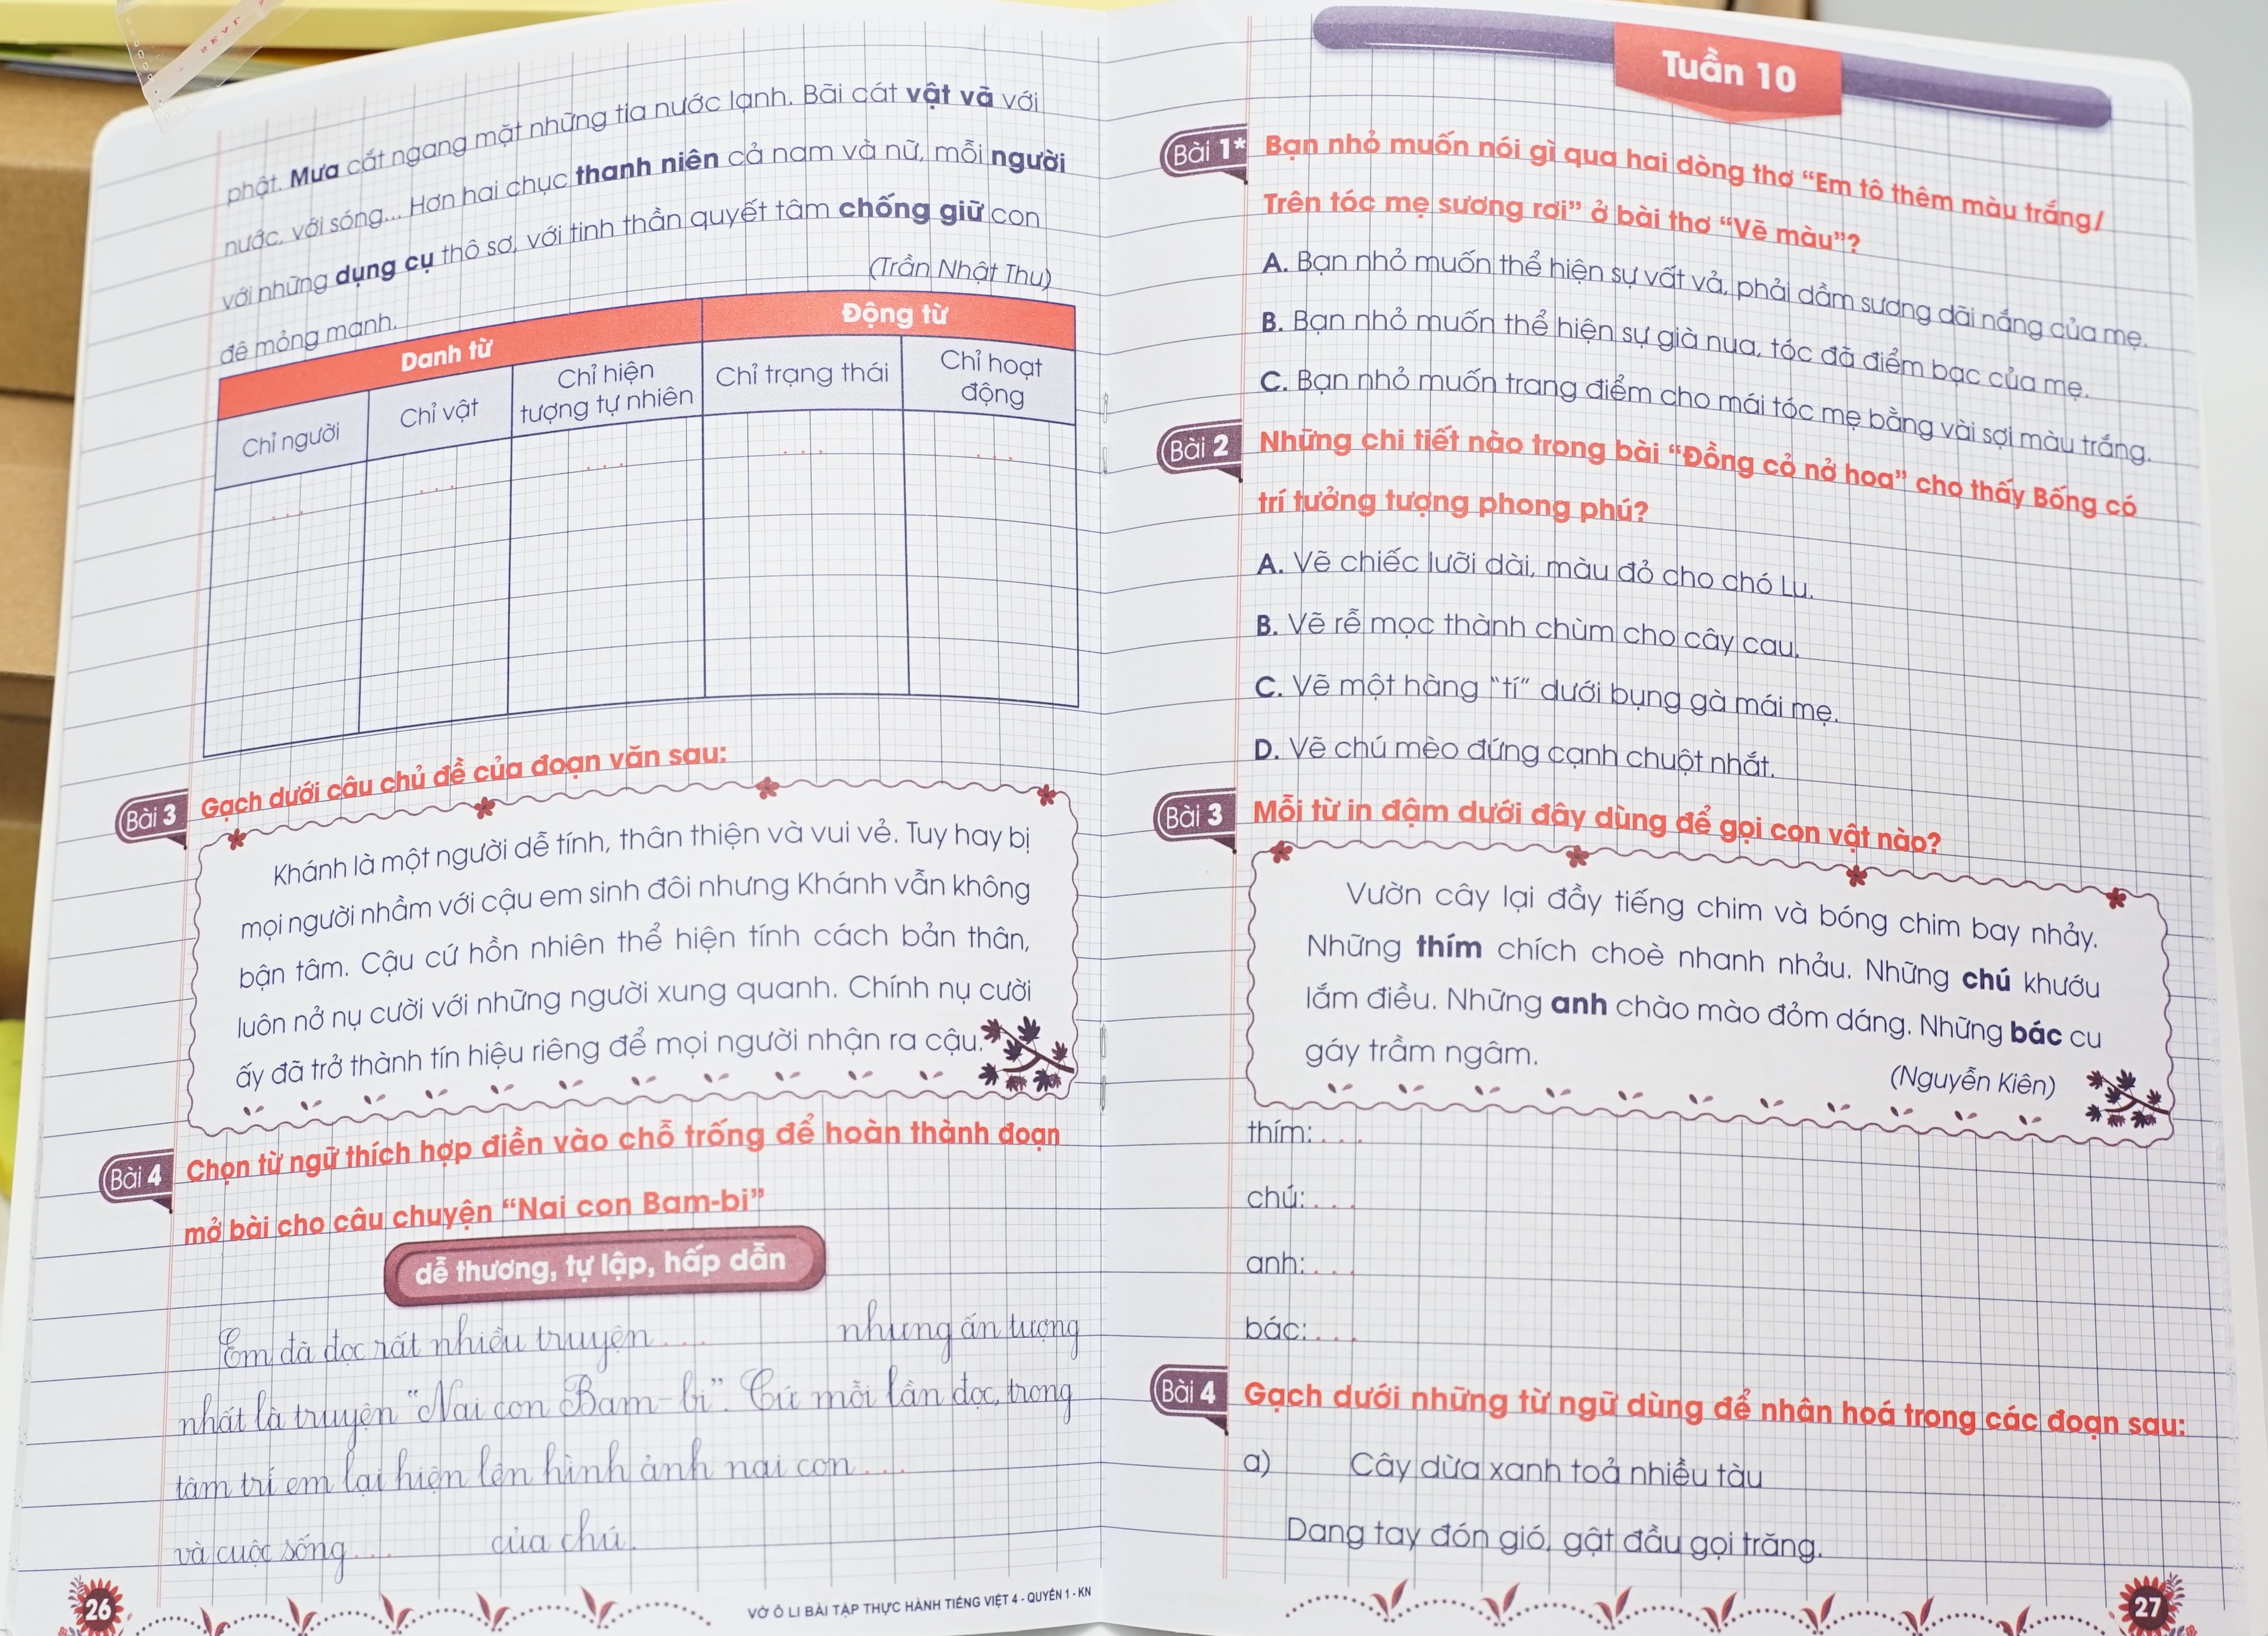 phật. Mưa cắt ngang mặt những tia nước lạnh. Bãi cát vật vã với
nước, với sóng... Hơn hai chục thanh niên cả nam và nữ, mỗi người
với những dụng cụ thô sơ, với tinh thần quyết tâm chống giữ con
đê mỏng manh.
(Trần Nhật Thu)
Danh từ
Động từ
Chỉ người
Chỉ vật
Chỉ hiện
tượng tự nhiên
Chỉ trạng thái
Chỉ hoạt
động
...
...
...
...
...
Bài 3 Gạch dưới câu chủ đề của đoạn văn sau:
Khánh là một người dễ tính, thân thiện và vui vẻ. Tuy hay bị
mọi người nhầm với cậu em sinh đôi nhưng Khánh vẫn không
bận tâm. Cậu cứ hồn nhiên thể hiện tính cách bản thân,
luôn nở nụ cười với những người xung quanh. Chính nụ cười
ấy đã trở thành tín hiệu riêng để mọi người nhận ra cậu.
Bài 4 Chọn từ ngữ thích hợp điền vào chỗ trống để hoàn thành đoạn
mở bài cho câu chuyện “Nai con Bam-bi”
dễ thương, tự lập, hấp dẫn
Em đã đọc rất nhiều truyện ... nhưng ấn tượng
nhất là truyện “Nai con Bam-bi”. Cứ mỗi lần đọc, trong
tâm trí em lại hiện lên hình ảnh nai con ...
và cuộc sống ... của chú.
26
VỞ Ô LI BÀI TẬP THỰC HÀNH TIẾNG VIỆT 4 - QUYỂN 1 - KN
Tuần 10
Bài 1* Bạn nhỏ muốn nói gì qua hai dòng thơ “Em tô thêm màu trắng/
Trên tóc mẹ sương rơi” ở bài thơ “Vẽ màu”?
A. Bạn nhỏ muốn thể hiện sự vất vả, phải dầm sương dãi nắng của mẹ.
B. Bạn nhỏ muốn thể hiện sự già nua, tóc đã điểm bạc của mẹ.
C. Bạn nhỏ muốn trang điểm cho mái tóc mẹ bằng vài sợi màu trắng.
Bài 2 Những chi tiết nào trong bài “Đồng cỏ nở hoa” cho thấy Bống có
trí tưởng tượng phong phú?
A. Vẽ chiếc lưỡi dài, màu đỏ cho chó Lu.
B. Vẽ rễ mọc thành chùm cho cây cau.
C. Vẽ một hàng “tí” dưới bụng gà mái mẹ.
D. Vẽ chú mèo đứng cạnh chuột nhắt.
Bài 3 Mỗi từ in đậm dưới đây dùng để gọi con vật nào?
Vườn cây lại đầy tiếng chim và bóng chim bay nhảy.
Những thím chích choè nhanh nhảu. Những chú khướu
lắm điều. Những anh chào mào đỏm dáng. Những bác cu
gáy trầm ngâm.
(Nguyễn Kiên)
thím: ...
chú: ...
anh: ...
bác: ...
Bài 4 Gạch dưới những từ ngữ dùng để nhân hoá trong các đoạn sau:
a) Cây dừa xanh toả nhiều tàu
Dang tay đón gió, gật đầu gọi trăng.
27